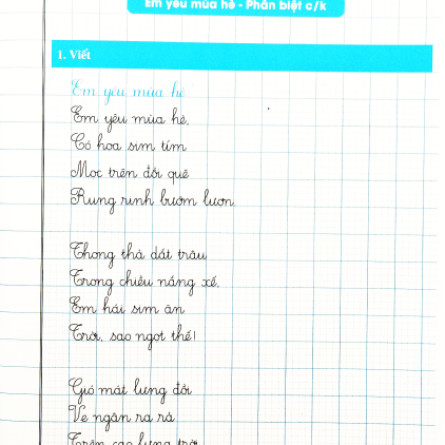 Em yêu mùa hè - Phân biệt c/k
1. Viết
Em yêu mùa hè
Em yêu mùa hè,
Có hoa sim tím
Mọc trên đồi quê
Rung rinh bướm lượn.
Thong thả dắt trâu
Trong chiều nắng xế,
Em hái sim ăn
Trời, sao ngọt thế!
Gió mát lưng đồi
Ve ngân ra rả
Trên cao lưng trời